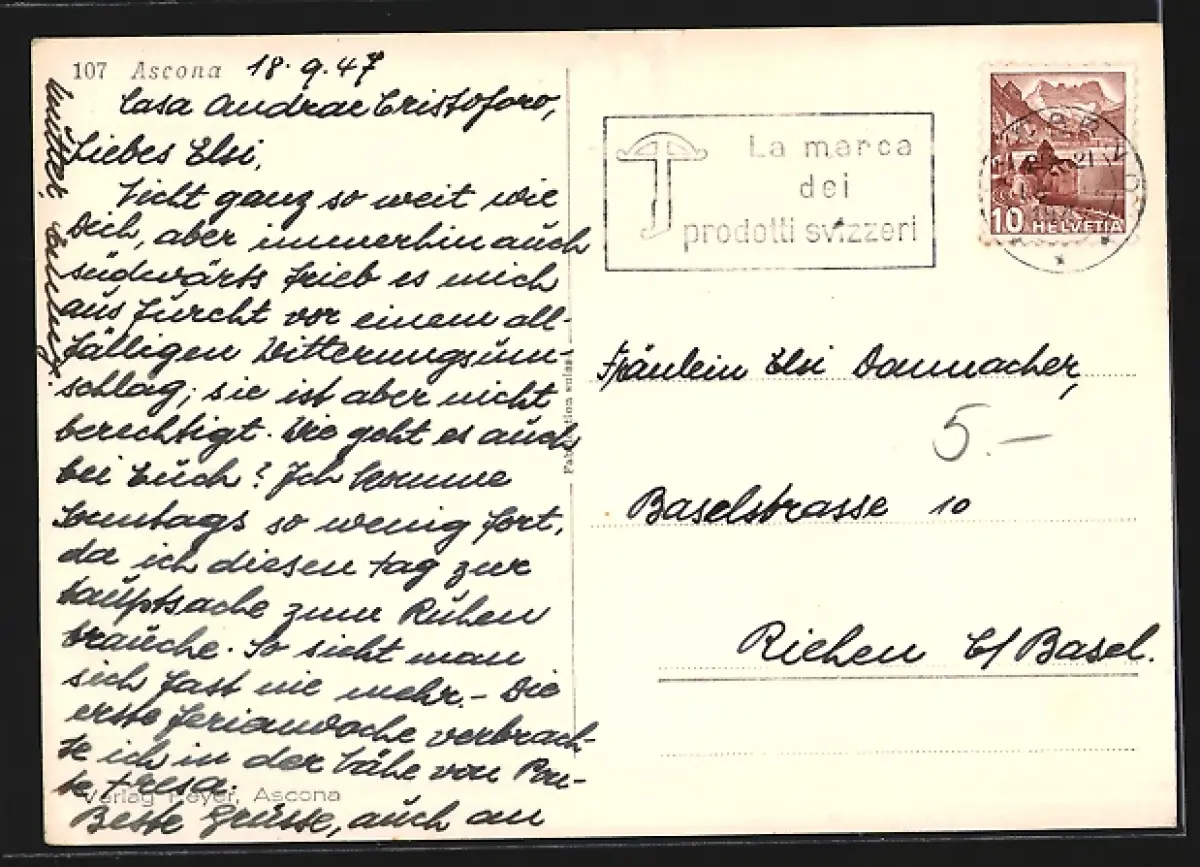 107 Ascona 18.9.47
Casa Andrae Cristoforo,
Liebes Elsi,
Nicht ganz so weit wie
Dich, aber immerhin auch
südwärts trieb es mich
aus Furcht vor einem all-
fälligen Witterungsum-
schlag; sie ist aber nicht
berechtigt. Wie geht es auch
bei Euch? Ich komme
Sonntags so wenig fort,
da ich diesen Tag zur
Hauptsache zum Ruhen
brauche. So sieht man
sich fast nie mehr. – Die
erste Ferienwoche verbrach-
te ich in der Nähe von Pon-
te Tresa.
Verlag Meyer, Ascona
Beste Grüsse, auch an
Mutter,
La marca
dei
prodotti svizzeri
10 HELVETIA
Fräulein Elsi Dammacher,
5.—
Baselstrasse 10
Riehen b/ Basel.